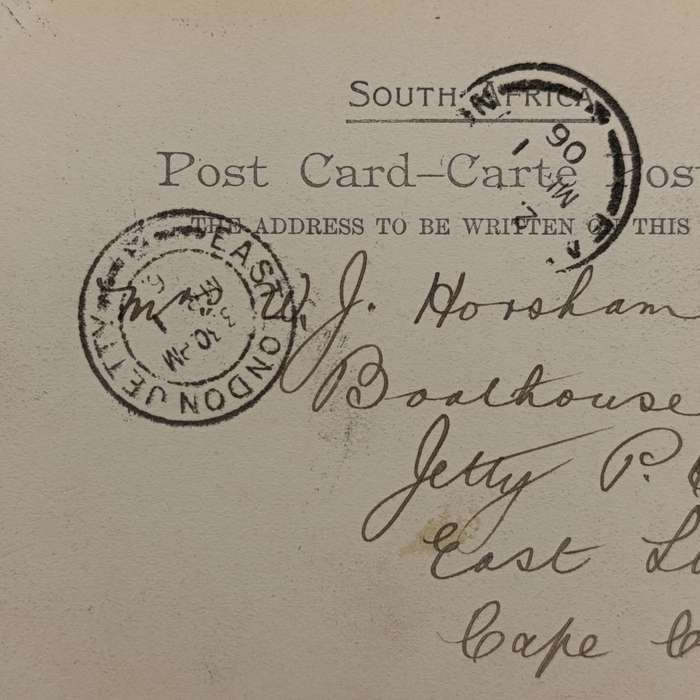 SOUTH AFRICA
Post Card–Carte Pos
THE ADDRESS TO BE WRITTEN ON THIS
EAST LONDON JETTY
30 PM
IN
06
MR
1
Mr W. J. Horsham
Boathouse
Jetty P.
East Lo
Cape C